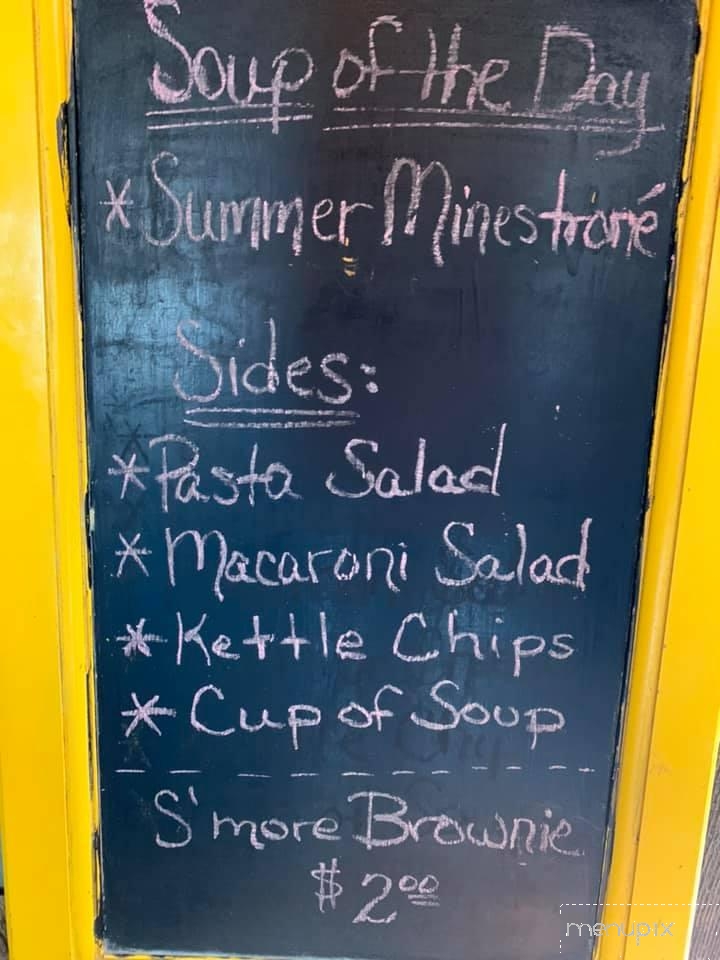 Soup of the Day
* Summer Minestroné
Sides:
* Pasta Salad
* Macaroni Salad
* Kettle Chips
* Cup of Soup
S'more Brownie
$2.00
menupix